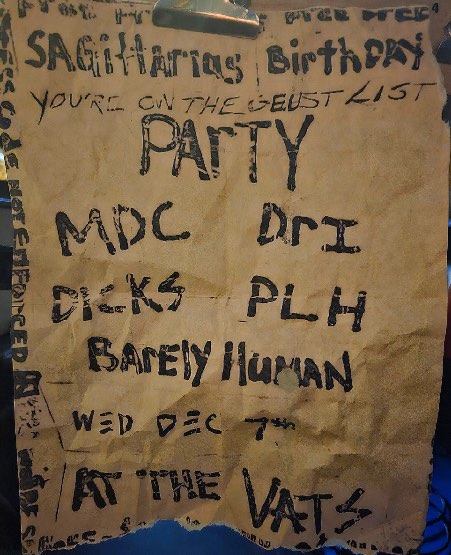 SAGittArias BirthDAY
YOU'RE ON THE GEUST LIST
PArTY
MDC DrI
DICKS PLH
BArElY HUMAN
WED DEC 7th
AT THE VATS
DrESS CODE NOT ENFORCED